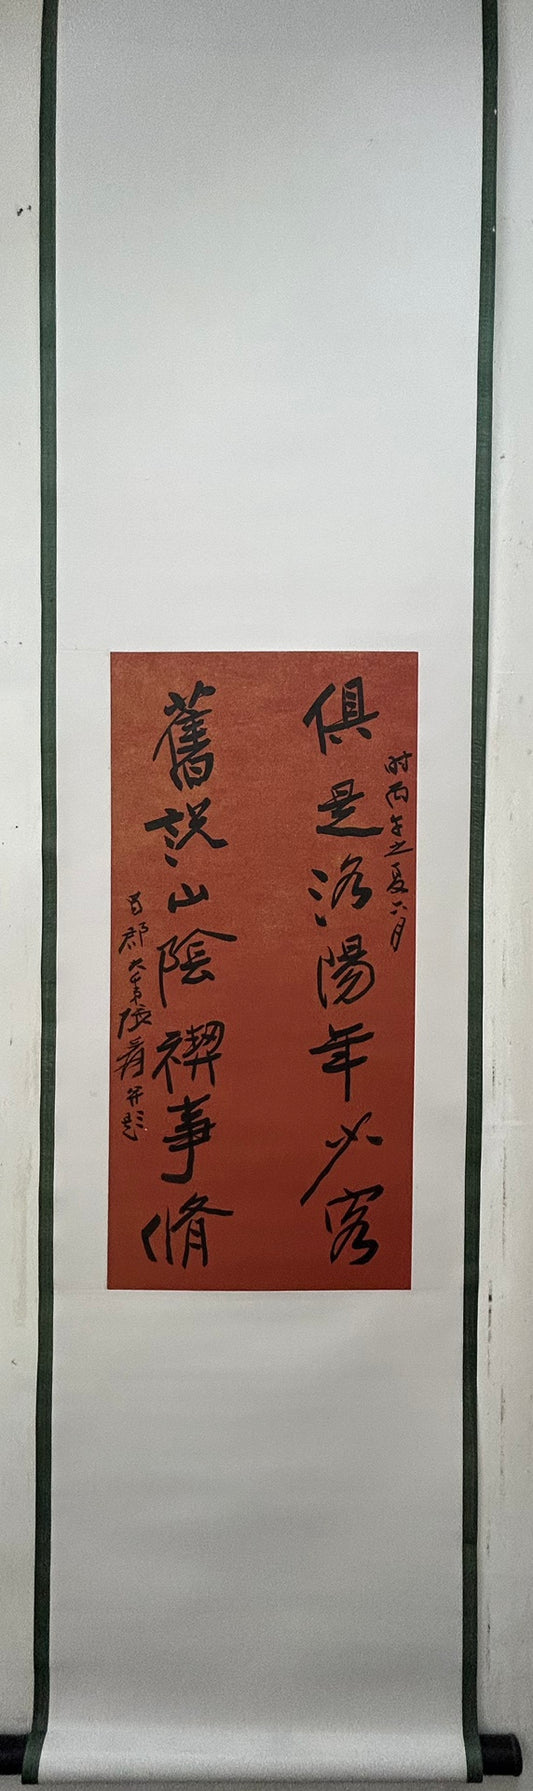 時丙午之夏六月
俱是洛陽年少客
舊說山陰禊事脩
蜀郡大千張爰并題